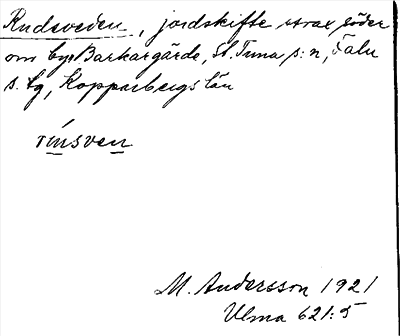 Rudsveden, jordskifte strax söder
om byn Barkargärde, St. Tuna s:n, Falu
s. lg, Kopparbergs län
M. Andersson 1921
Ulma 621:5